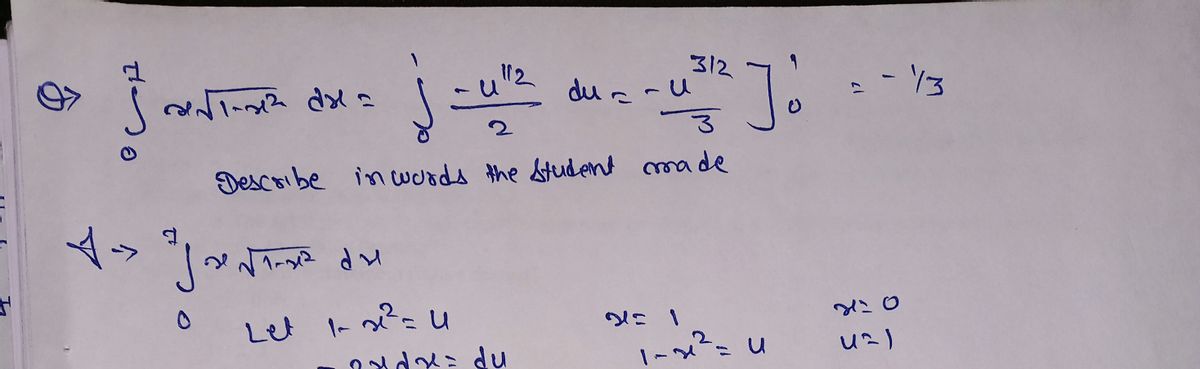 Q> ∫₀⁷ x√1-x² dx = ∫₀¹ -u^1/2 / 2 du = -u^3/2 / 3 ]₀¹ = -1/3
Describe in words the student made
A-> ⁷∫₀ x √1-x² dx
Let 1-x² = u x= 1 x= 0
- 2xdx= du 1-x² = u u=1